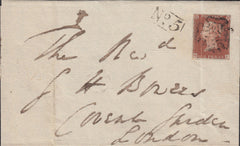 No. 5
The Revd
G H Bowers
Covent Garden
London